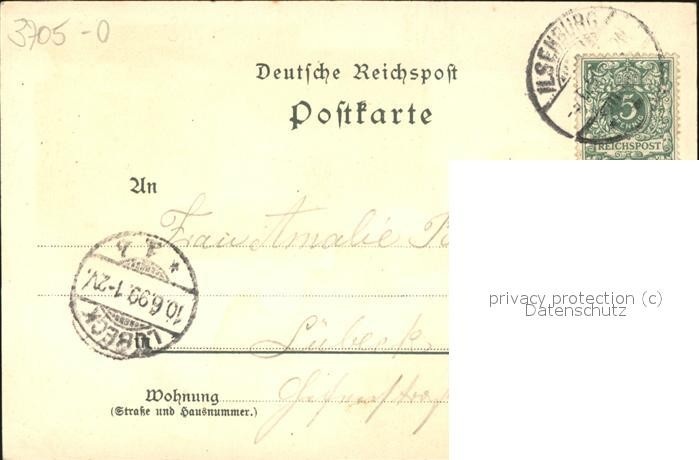 3705-0
ILSENBURG
Deutsche Reichspost
Postkarte
5
PFENNIG
REICHSPOST
An
Frau Amalie
LÜBECK
10.6.99.1-2V.
privacy protection (c)
Datenschutz
in
Lübeck
Wohnung
(Straße und Hausnummer.)